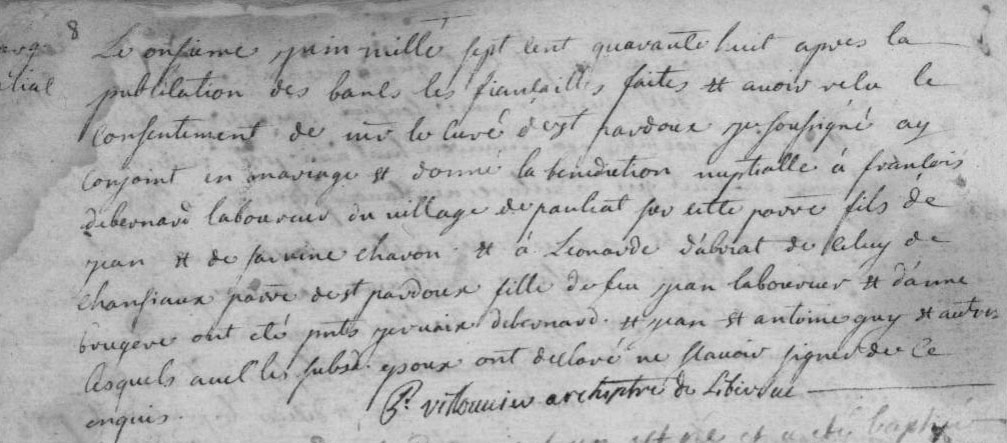 8
Le onsieme juin mille sept cent quarante huit apres la
publication des bancs les fiançailles faites et avoir veu le
Consentement de mr le curé de st pardoux je soussigné ay
Conjoint en mariage et donné la benediction nuptialle à francois
debernard laboureur du village de pauliat sur cette parre fils de
jean et de chavon et à Leonarde d'abriat de celuy de
parre de st pardoux fille de feu jean laboureur et d'anne
brugere ont eté pnts gervaix debernard et jean et antoine guy et autres
lesquels avec les subsd. epoux ont declaré ne scavoir signer de ce
enquis.
archiptre de